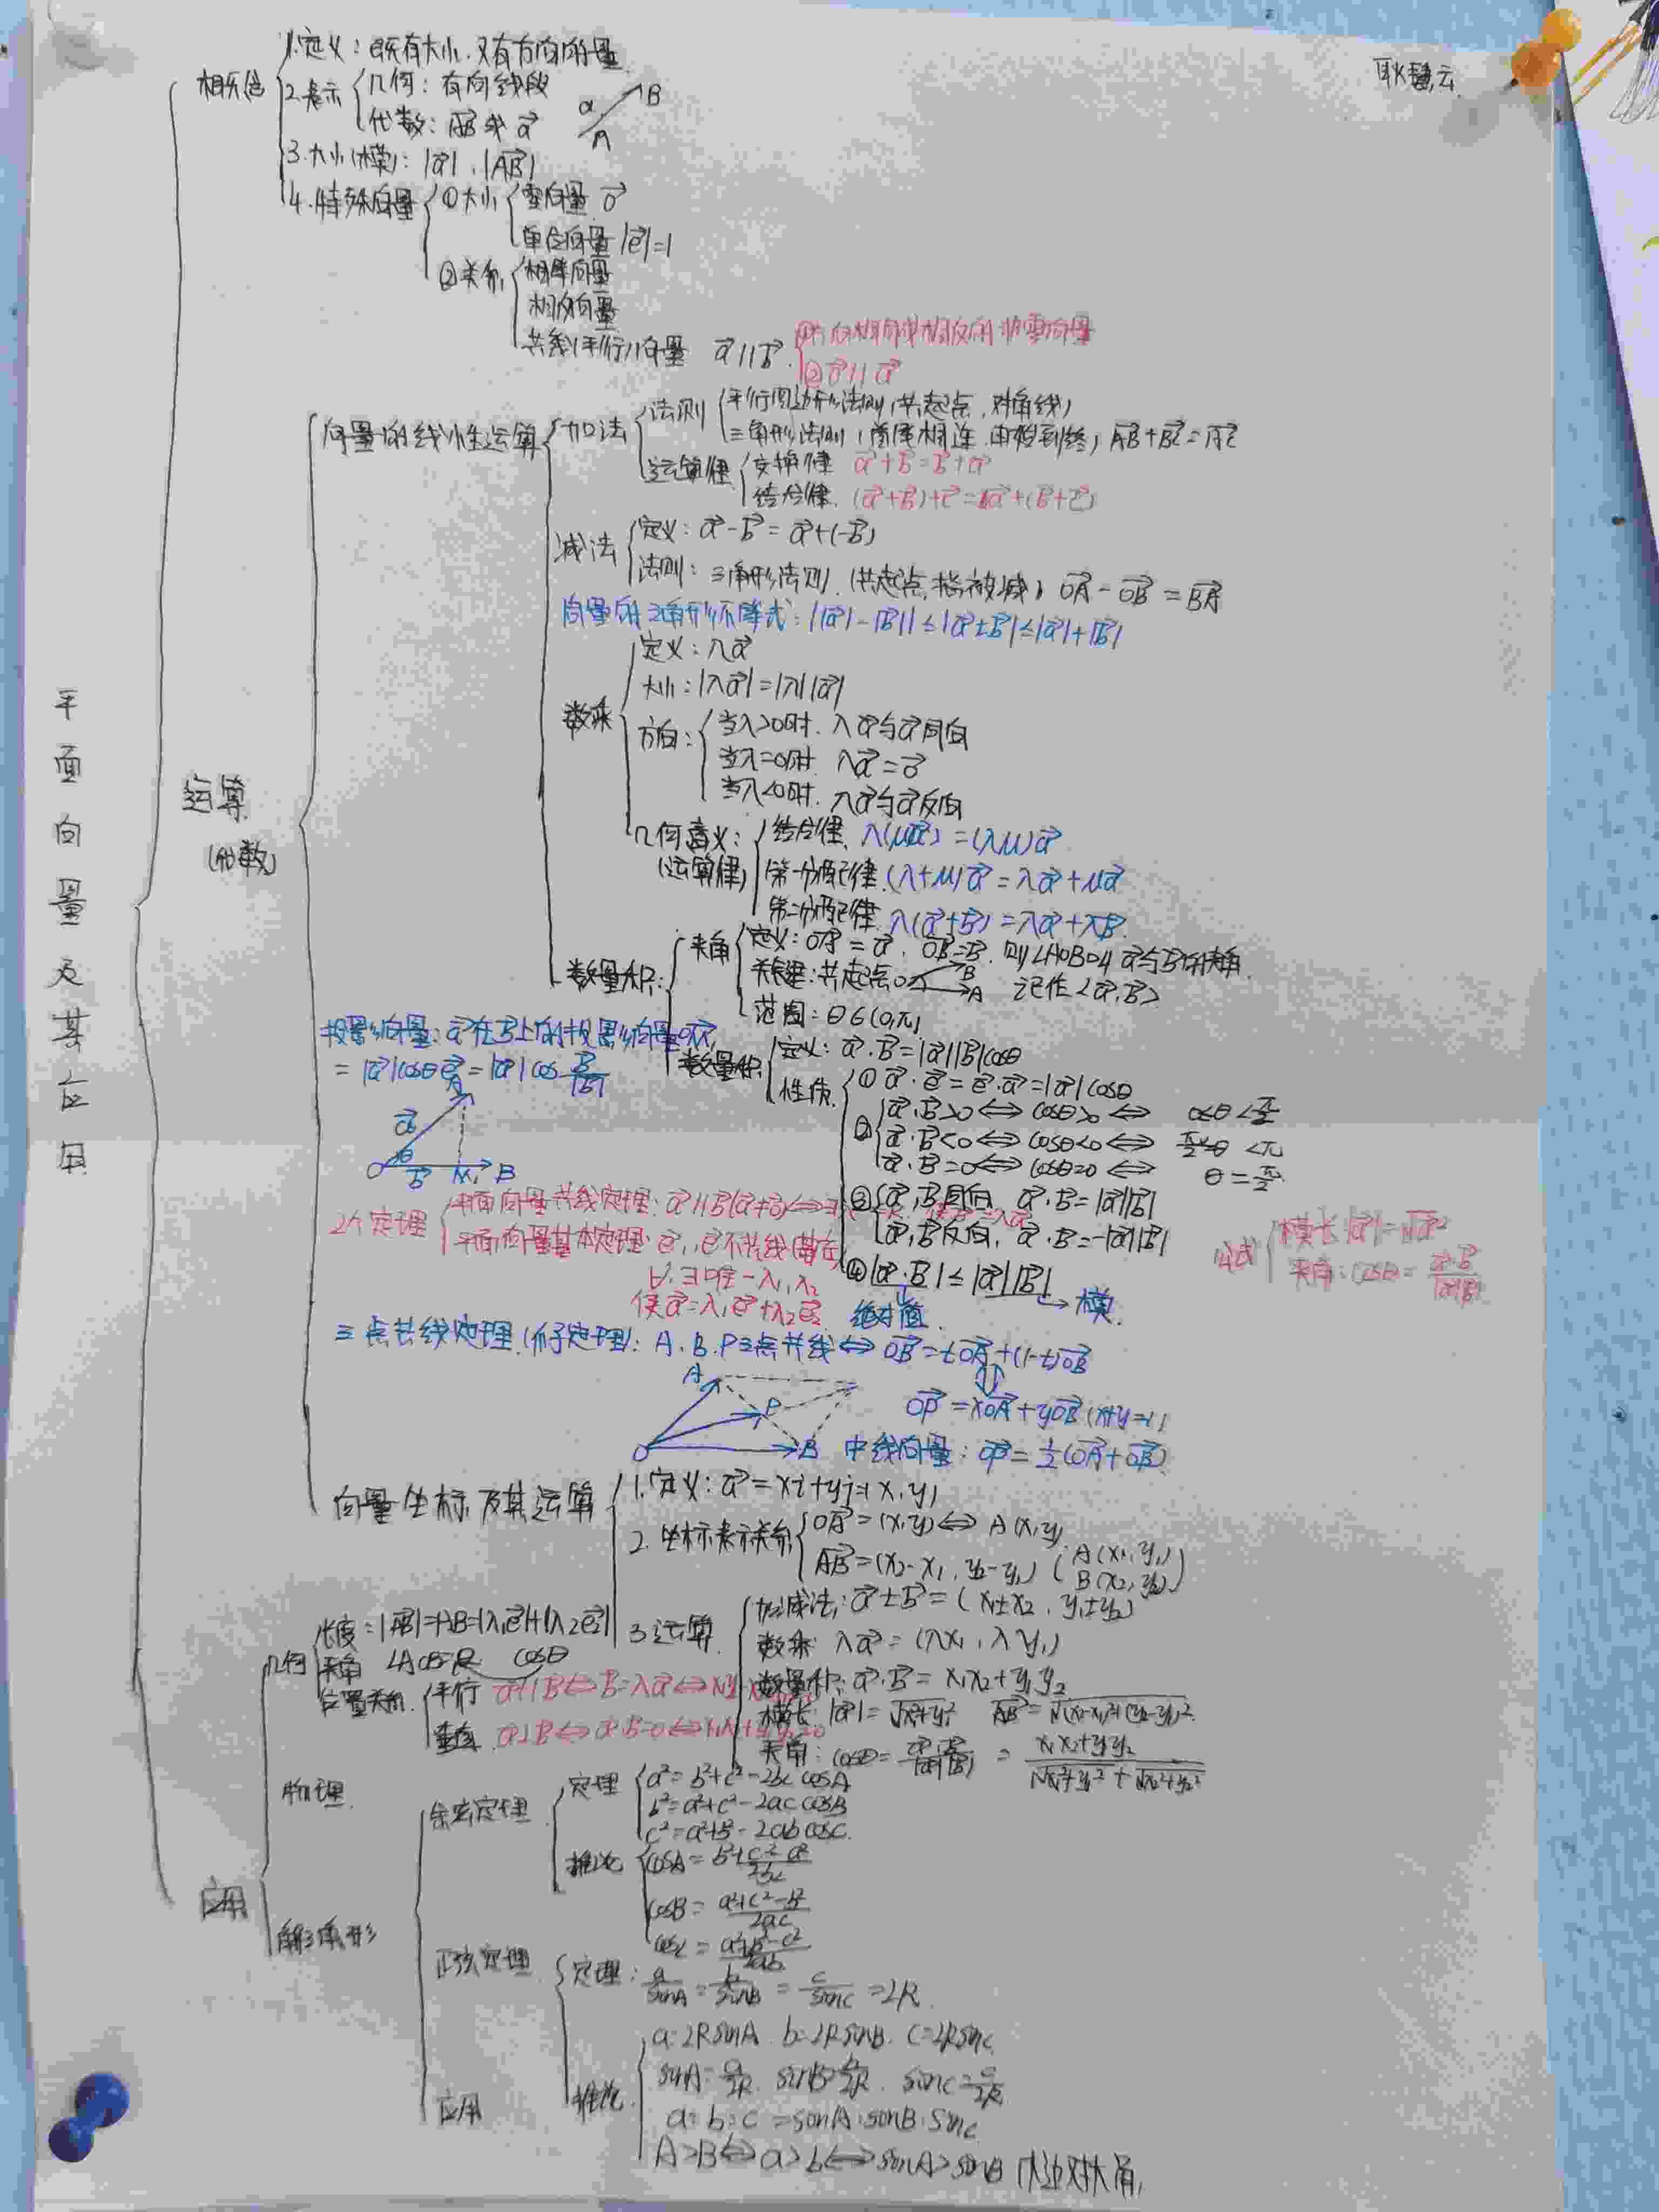 耿慧云
平面向量及其应用
相关概念
1.定义：既有大小.又有方向的量
2.表示
几何：有向线段
代数：AB→或 a→
a B A
3.大小(模)：|a→|.|AB→|
4.特殊向量
①大小
零向量 0→
单位向量 |e→|=1
②关系
相等向量
相反向量
共线(平行)向量 a→//b→
①方向相同或相反的非零向量
②0→//a→
运算(代数)
向量的线性运算
加法
法则
平行四边形法则(共起点.对角线)
三角形法则(首尾相连.由始到终) AB→+BC→=AC→
运算律
交换律 a→+b→=b→+a→
结合律.(a→+b→)+c→=a→+(b→+c→)
减法
定义：a→-b→=a→+(-b→)
法则：三角形法则.(共起点,指被减) OA→-OB→=BA→
向量的三角形不等式：||a→|-|b→||≤|a→±b→|≤|a→|+|b→|
数乘
定义：λa→
大小：|λa→|=|λ||a→|
方向：
当λ>0时.λa→与a→同向
当λ=0时.λa→=0→
当λ<0时.λa→与a→反向
几何意义：
(运算律)
结合律.λ(μa→)=(λμ)a→
第一分配律.(λ+μ)a→=λa→+μa→
第二分配律.λ(a→+b→)=λa→+λb→
数量积：
夹角
定义：OA→=a→.OB→=b→.则∠AOB叫a→与b→的夹角.
关键：共起点 O B A 记作<a→,b→>
范围：θ∈(0,π)
投影向量：a→在b→上的投影向量OM₁→
=|a→|cosθ e→=|a→|cos b→/|b→|
A a→ θ O b→ M₁ B
数量积
定义：a→·b→=|a→||b→|cosθ
性质.
①a→·e→=e→·a→=|a→|cosθ
②a→·b→>0⇔cosθ>0⇔ 0≤θ<π/2
a→·b→<0⇔cosθ<0⇔ π/2<θ<π
a→·b→=0⇔cosθ=0⇔ θ=π/2
③a→,b→同向,a→·b→=|a→||b→|
a→,b→反向,a→·b→=-|a→||b→|
④|a→·b→|≤|a→||b→|
绝对值. 模.
公式
模长|a→|=√a→²
夹角：cosθ=a→·b→/|a→||b→|
2个定理
平面向量共线定理：a→//b→(a→≠0)⇔∃
平面向量基本定理：e₁→,e₂→不共线(基底)
∀.∃唯一λ₁,λ₂
使a→=λ₁e₁→+λ₂e₂→
三点共线定理.(爪子定理)：A.B.P三点共线⇔OB→=tOA→+(1-t)OB→
A P O B
OP→=xOA→+yOB→(x+y=1)
中线向量：OP→=1/2(OA→+OB→)
向量坐标及其运算
1.定义：a→=xi+yj=(x,y)
2.坐标表示关系
OA→=(x,y)⇔A(x,y)
AB→=(x₂-x₁,y₂-y₁) (A(x₁,y₁) B(x₂,y₂))
3.运算
加减法：a→±b→=(x₁±x₂,y₁±y₂)
数乘：λa→=(λx₁,λy₁)
数量积：a→·b→=x₁x₂+y₁y₂
模长：|a→|=√x₁²+y₁² AB→=√(x₂-x₁)²+(y₂-y₁)²
夹角：cosθ=a→·b→/|a→||b→|=x₁x₂+y₁y₂/√x₁²+y₁²+√x₂²+y₂²
应用
几何
长度：|AB→|=AB=|λ₁e₁→+λ₂e₂→|
夹角 cosθ
位置关系.
平行 a→//b→⇔b→=λa→⇔
垂直 a→⊥b→⇔a→·b→=0⇔x₁x₂+y₁y₂=0
物理.
解三角形
余弦定理
定理
a²=b²+c²-2bc cosA
b²=a²+c²-2ac cosB
c²=a²+b²-2ab cosC.
推论
cosA=b²+c²-a²/2bc
cosB=a²+c²-b²/2ac
cosC=a²+b²-c²/2ab
正弦定理
定理：a/sinA=b/sinB=c/sinC=2R
推论
a=2RsinA.b=2RsinB.c=2RsinC
sinA=a/2R.sinB=b/2R.sinC=c/2R
a:b:c=sinA:sinB:sinC
A>B⇔a>b⇔sinA>sinB(大边对大角)
应用